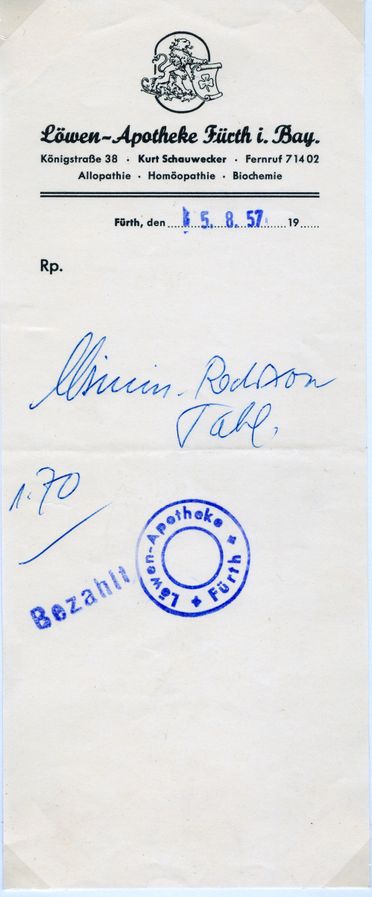 Löwen-Apotheke Fürth i. Bay.
Königstraße 38 · Kurt Schauwecker · Fernruf 71402
Allopathie · Homöopathie · Biochemie
Fürth, den 5. 8. 57. 19
Rp.
Tabl.
1.70
Löwen-Apotheke * Fürth *
Bezahlt